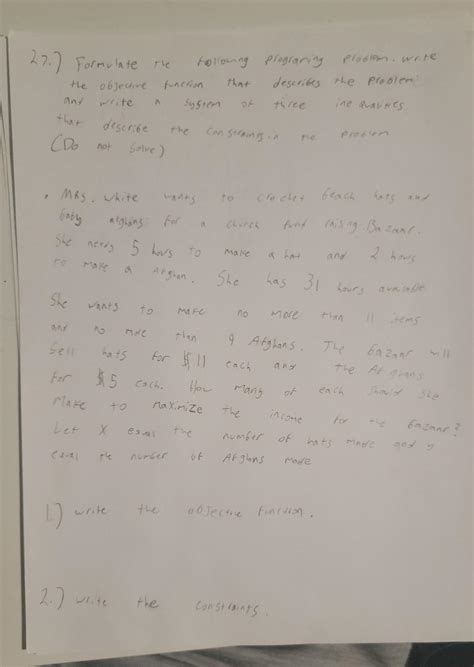 27.) Formulate the following programing problem. write
the objective function that describes the problem
and write a system of three inequalities
that describe the constraints in the problem
(Do not solve)
• MRS. white wants to crochet beach hats and
baby afghans for a church fund raising Bazaar.
She needs 5 hours to make a hat and 2 hours
to make a Afghan. She has 31 hours available
She wants to make no more than 11 items
and no more than 9 Afghans. The bazaar will
sell hats for $11 each and the Afghans
for $5 each. How many of each should she
make to maximize the income for the bazaar?
Let X equal the number of hats made and y
equal the number of Afghans made
1.) write the objective function.
2.) write the constraints.